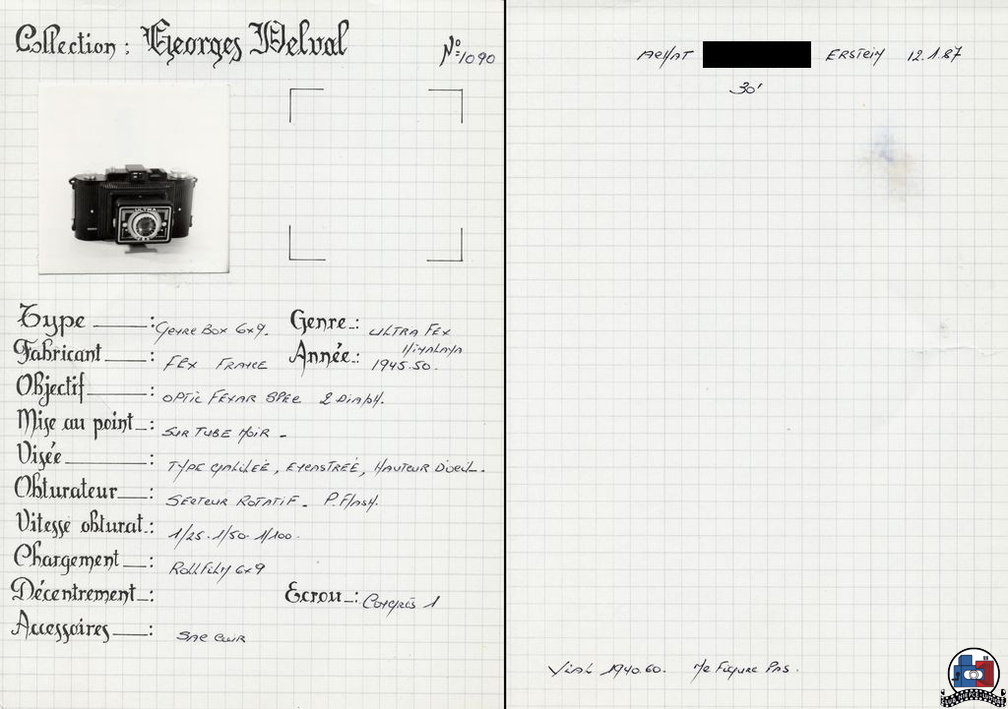 Collection : Georges Delval
N° 1090
Type : Genre Box 6x9. Genre : ULTRA FEX
HIMALAYA
Fabricant : FEX FRANCE Année : 1945.50.
Objectif : OPTIC FEXAR SPEC 2 DIAPH.
Mise au point : SUR TUBE NOIR -
Visée : TYPE GALILÉE, ENCASTRÉE, HAUTEUR D'OEIL.
Obturateur : SECTEUR ROTATIF - P.FLASH.
Vitesse obturat. : 1/25. 1/50. 1/100.
Chargement : ROLLFILM 6x9
Décentrement : Ecrou : CONGRÈS 1
Accessoires : SAC CUIR
ACHAT ERSTEIN 12.1.87
30'
VIAL 1940.60. NE FIGURE PAS.